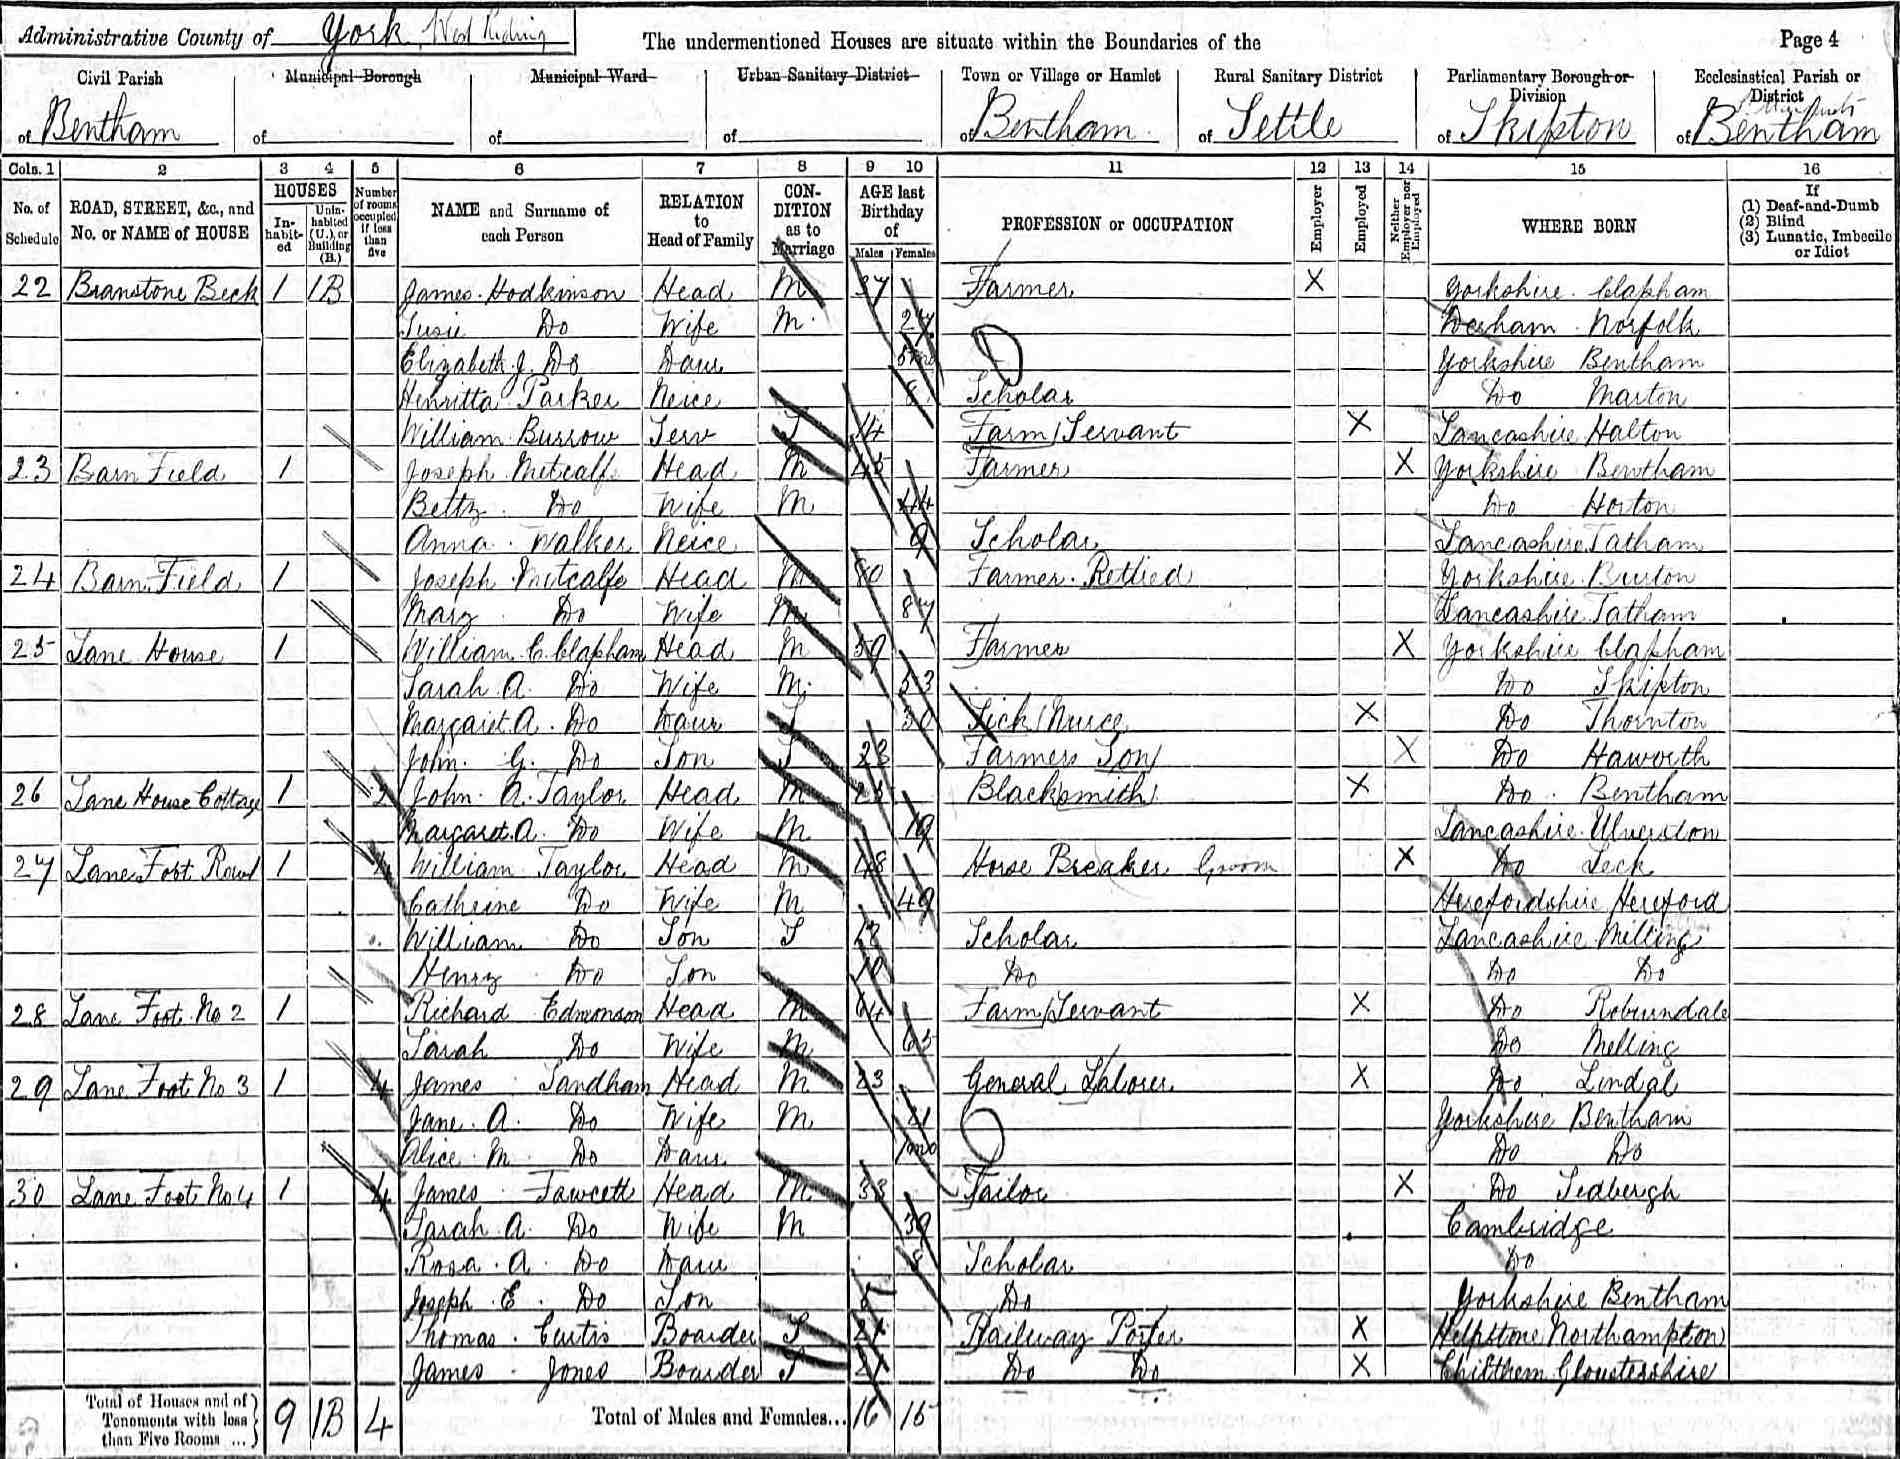 Administrative County of York, West Riding
The undermentioned Houses are situate within the Boundaries of the
Page 4
Civil Parish of Bentham
Municipal Borough of
Municipal Ward of
Urban Sanitary District of
Town or Village or Hamlet of Bentham
Rural Sanitary District of Settle
Parliamentary Borough or Division of Skipton
Ecclesiastical Parish or District of Bentham
Cols. 1 2 3 4 5 6 7 8 9 10 11 12 13 14 15 16
No. of Schedule
ROAD, STREET, &c., and No. or NAME of HOUSE
HOUSES
Inhabited
Uninhabited (U.), or Building (B.)
Number of rooms occupied if less than five
NAME and Surname of each Person
RELATION to Head of Family
CONDITION as to Marriage
AGE last Birthday of
Males Females
PROFESSION or OCCUPATION
Employer
Employed
Neither Employer nor Employed
WHERE BORN
If (1) Deaf-and-Dumb (2) Blind (3) Lunatic, Imbecile or Idiot
22 Branstone Beck 1 1B James Hodkinson Head M 37 Farmer X Yorkshire Clapham
Susie Do Wife M 27 Dereham Norfolk
Elizabeth J. Do Daur 5mo Yorkshire Bentham
Henritta Parker Neice 8 Scholar Do Marton
William Burrow Serv S 14 Farm Servant X Lancashire Halton
23 Barn Field 1 Joseph Metcalfe Head M 45 Farmer X Yorkshire Bentham
Betty Do Wife M 44 Do Horton
Anna Walker Neice 9 Scholar Lancashire Tatham
24 Barn Field 1 Joseph Metcalfe Head M 80 Farmer Retlied Yorkshire Burton
Mary Do Wife M 87 Lancashire Tatham
25 Lane House 1 William C. Clapham Head M 59 Farmer X Yorkshire Clapham
Sarah A. Do Wife M 53 Do Skipton
Margaret A. Do Daur S 30 Sick Nurce X Do Thornton
John G. Do Son S 23 Farmers Son X Do Haworth
26 Lane House Cottage 1 John A. Taylor Head M Blacksmith X Do Bentham
Margaret A. Do Wife M 19 Lancashire Ulverston
27 Lane Foot Row 1 William Taylor Head M 48 Horse Breaker Groom X Do Leck
Cathrine Do Wife M 49 Herefordshire Hereford
William Do Son S Scholar Lancashire Melling
Henry Do Son 10 Do Do Do
28 Lane Foot No 2 1 Richard Edmonson Head M 64 Farm Servant X Do Roburndale
Sarah Do Wife M 65 Do Melling
29 Lane Foot No 3 1 4 James Sandham Head M 23 General Laborer X Do Lindal
Jane A. Do Wife M 21 Yorkshire Bentham
Alice M. Do Daur mo Do Do
30 Lane Foot No 4 1 4 James Fawcett Head M 38 Tailor X Do Sedbergh
Sarah A. Do Wife M 39 Cambridge
Rosa A. Do Daur 8 Scholar Do
Joseph E. Do Son 5 Do Yorkshire Bentham
Thomas Curtis Boarder S 21 Railway Porter X Helpstone Northampton
James Jones Boarder S 21 Do Do X Chilthem Gloustershire
Total of Houses and of Tenements with less than Five Rooms ... 9 1B 4
Total of Males and Females... 16 15